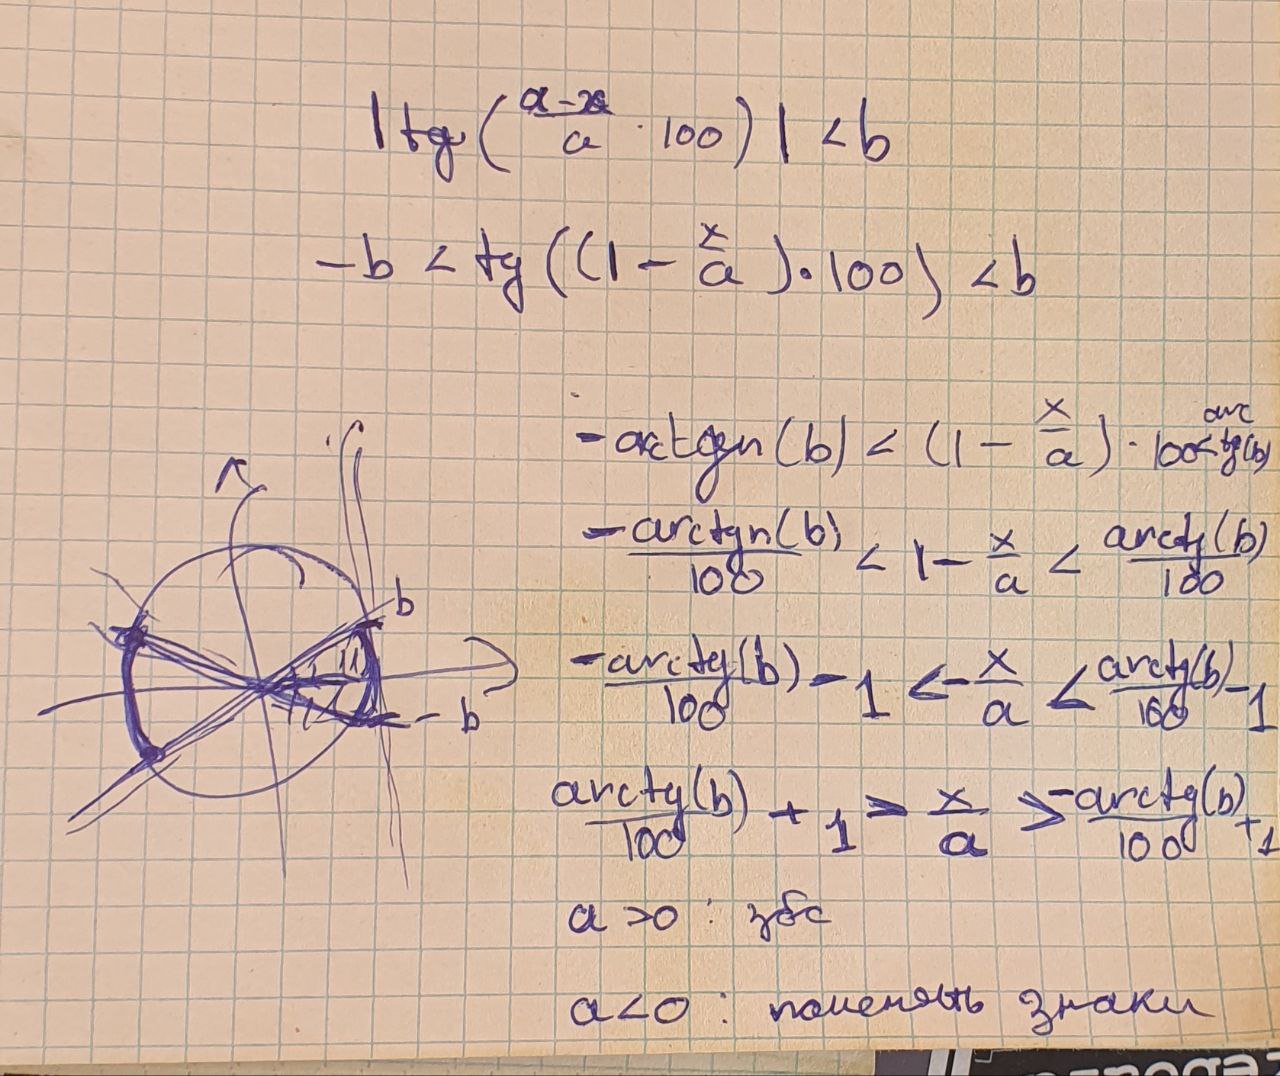 |tg(\frac{a-x}{a} · 100)| < b
-b < tg((1 - \frac{x}{a})·100) < b
-arctgn(b) < (1 - \frac{x}{a}) · 100 < arctg(b)
-\frac{arctgn(b)}{100} < 1 - \frac{x}{a} < \frac{arctg(b)}{100}
-\frac{arctg(b)}{100} - 1 < -\frac{x}{a} < \frac{arctg(b)}{100} - 1
\frac{arctg(b)}{100} + 1 > \frac{x}{a} > -\frac{arctg(b)}{100} + 1
b
-b
a>0 : збс
a<0 : поменять знаки